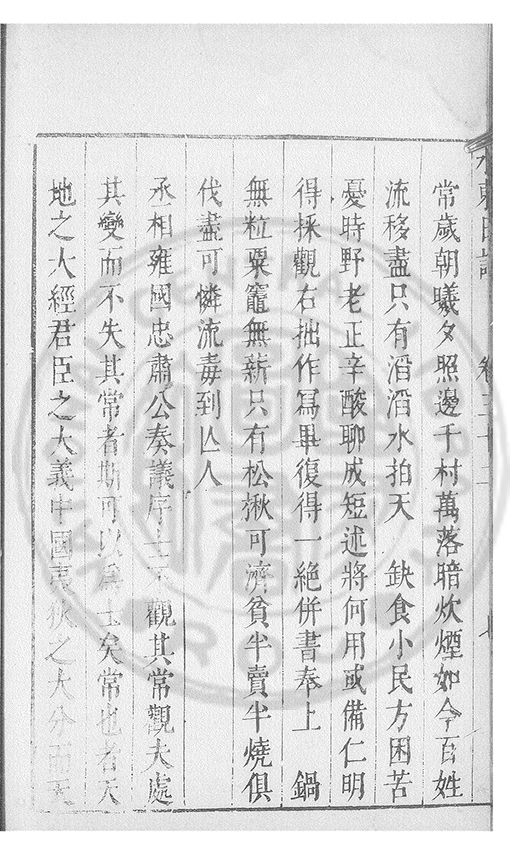 常歲朝曦夕照邊千村萬落暗炊煙如今百姓
流移盡只有滔滔水拍天　缺食小民方困苦
憂時野老正辛酸聊成短述將何用或備仁明
得採觀右拙作寫畢復得一絶併書奉上　鍋
無粒粟竈無薪只有松揪可濟貧半賣半燒俱
伐盡可憐流毒到亾人
丞相雍國忠肅公奏議序士不觀其常觀大處
其變而不失其常者斯可以爲士矣常也者天
地之大經君臣之大義中國夷狄之大分而天